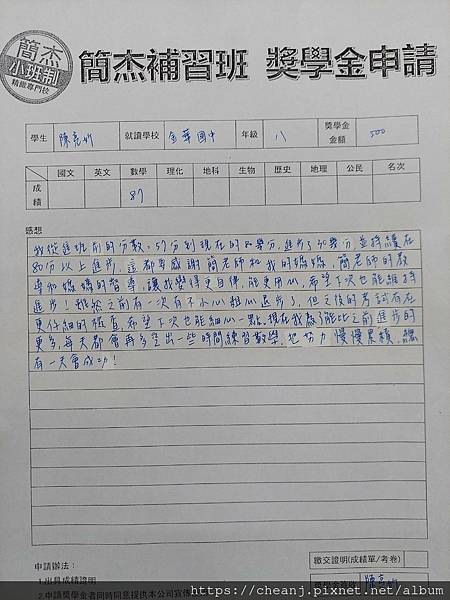 簡杰
小班制
精緻專門校
簡杰補習班 獎學金申請
學生 就讀學校 金華國中 年級 八 獎學金金額 500
國文 英文 數學 理化 地科 生物 歷史 地理 公民 名次
成績 87
感想
我從進班前的分數,57分到現在的80幾分,進步了30幾分,並持續在
80分以上進步,這都多感謝簡老師和我的媽媽,簡老師的教
導和媽媽的督導,讓我變得更自律,能更用心,希望下次也能維持
進步!雖然之前有一次有不小心粗心退步了,但之後的考試有在
更仔細的檢查,希望下次也能細心一點,現在我為了能比之前進步的
更多,每天都會再多空出一些時間練習數學,把努力慢慢累積,總
有一天會成功!
申請辦法:
1.出具成績證明
2.申請獎學金者同時同意提供本公司宣
繳交證明(成績單/考卷)
https://cheanj.pixnet.net/album